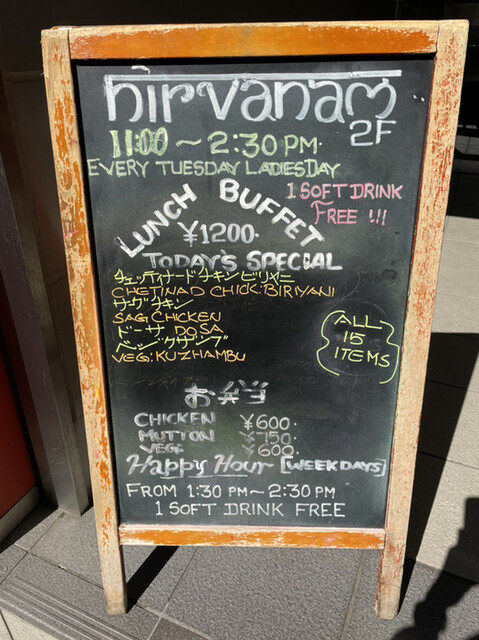 nirvanam
2F
11:00 ~ 2:30 PM.
EVERY TUESDAY LADIES DAY
1 SOFT DRINK
FREE !!!
LUNCH BUFFET
¥1200.
TODAY'S SPECIAL
チェッティナードチキンビリヤニ
CHETINAD CHICK: BIRIYANI
サグチキン
SAG CHICKEN
ドーサ DOSA
ベジクザンブ
VEG: KUZHAMBU
ALL
15
ITEMS
お弁当
CHICKEN ¥600.
MUTTON ¥750.
VEG: ¥600
Happy Hour [WEEKDAYS]
FROM 1:30 PM ~ 2:30 PM
1 SOFT DRINK FREE